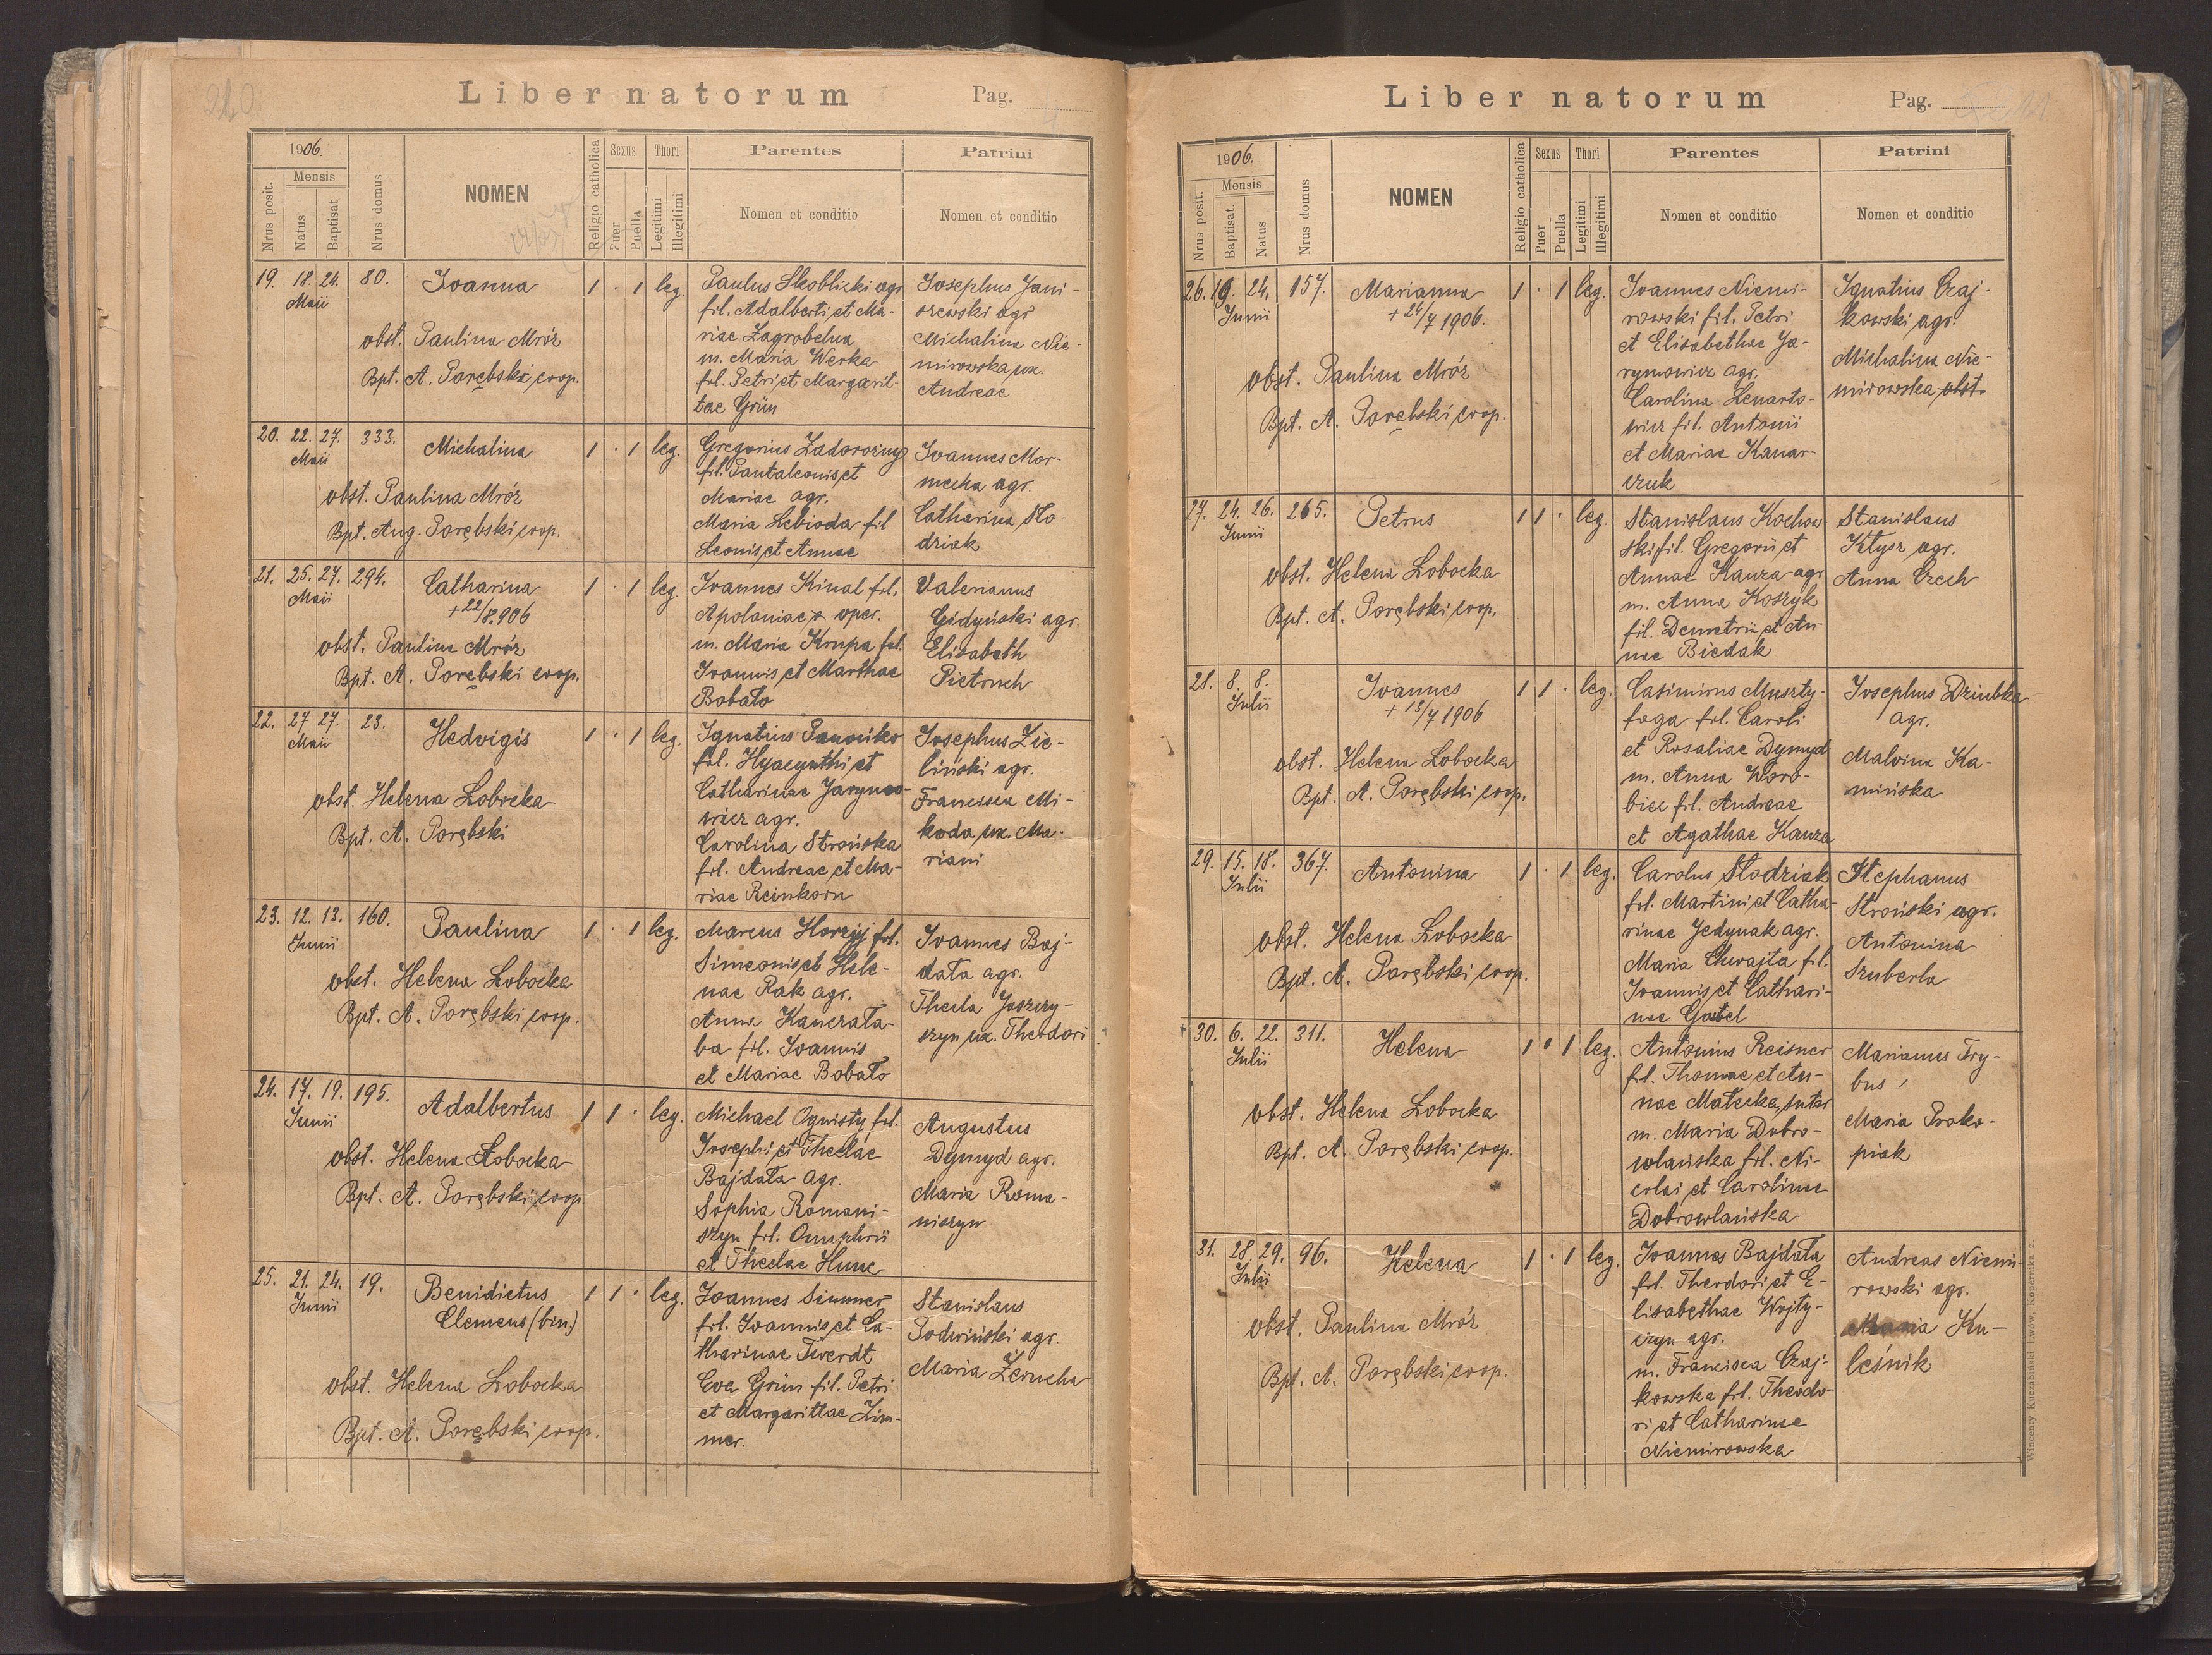 210
Liber natorum Pag.
1906.
Nrus posit.
Mensis
Natus
Baptisat
Nrus domus
NOMEN
Religio catholica
Sexus
Puer
Puella
Thori
Legitimi
Illegitimi
Parentes
Nomen et conditio
Patrini
Nomen et conditio
19. 18. 24. Maii 80. Ioanna 1 · 1 leg.
obst. Paulina Mróz
Bpt. A. Porębski, coop.
Paulus Skoblicki agr
fil. Adalberti et Ma-
riae Zagrobelna
m. Maria Werka
fil. Petri et Margarit-
tae Grün
Iosephus Jani-
szewski agr
Michalina Nie-
mirowska ux.
Andreae
20. 22. 27. Maii 333. Michalina 1 · 1 leg.
obst. Paulina Mróz
Bpt. Aug. Porębski coop.
Gregorius Zadorozny
fil. Pantaleonis et
Mariae agr.
Maria Lebioda fil
Leonis et Annae
Ioannes Mor-
mecha agr.
Catharina Sło-
dziak
21. 25. 27. Maii 294. Catharina 1 · 1 leg.
+ 22/8.906
obst. Paulina Mróz
Bpt. A. Porębski coop.
Ioannes Kinal fil.
Apoloniae oper.
m. Maria Krupa fil.
Ioannis et Marthae
Bobato
Valerianus
Gidyński agr.
Elisabeth
Pietruch
22. 27 27. Maii 23. Hedvigis 1 · 1 leg.
obst. Helena Łobocka
Bpt. A. Porębski
Ignatius
fil. Hyacynthi et
Catharinae Jarymo-
wicz agr.
Carolina Strońska
fil. Andreae et Ma-
riae Reinkorn
Iosephus Zie-
liński agr.
Francisca Mi-
koda ux. Ma-
riani
23. 12. 13. Iunii 160. Paulina 1 · 1 leg.
obst. Helena Łobocka
Bpt. A. Porębski, coop.
Marcus Horzij fil.
Simeonis et Hele-
nae Rak agr.
Anna Kanczała-
ba fil. Ioannis
et Mariae Bobato
Ioannes Baj-
data agr.
Thecla Jaszczy-
szyn ux. Theodori
24. 17. 19. Iunii 195. Adalbertus 1 1 · leg.
obst. Helena Łobocka
Bpt. A. Porębski, coop.
Michael Ognisty fil.
Iosephi et Theclae
Bajdata agr.
Sophia Romani-
szyn fil. Onuphrii
et Theclae Hunc
Augustus
Dymyd agr.
Maria Roma-
niszyn
25. 21. 24. Iunii 19. Benidictus 1 1 · leg.
Clemens (bin.)
obst. Helena Łobocka
Bpt. A. Porębski, coop.
Ioannes Simmer
fil. Ioannis et Ca-
tharinae Twerdt
Eva Grün fil. Petri
et Margarittae Zim-
mer.
Stanislaus
Podwiński agr.
Maria Żerucha
Liber natorum Pag.
1906.
Nrus posit.
Mensis
Baptisat.
Natus
Nrus domus
NOMEN
Religio catholica
Sexus
Puer
Puella
Thori
Legitimi
Illegitimi
Parentes
Nomen et conditio
Patrini
Nomen et conditio
26. 19. 24. Iunii 157. Marianna 1 · 1 leg.
+ 24/7 1906.
obst. Paulina Mróz
Bpt. A. Porębski, coop.
Ioannes Niemi-
rowski fil. Petri
et Elisabethae Ja-
rymowicz agr.
Carolina Lenarto-
wicz fil. Antonii
et Mariae Kanar-
czuk
Ignatius Czaj-
kowski agr.
Michalina Nie-
mirowska obst.
27. 24. 26. Iunii 265. Petrus 1 1 · leg.
obst. Helena Łobocka
Bpt. A. Porębski, coop.
Stanislaus Kochow
ski fil. Gregorii et
Annae Kauza agr
m. Anna Koszyk
fil. Demetrii et An-
nae Biedak
Stanislaus
Kłysz agr.
Anna Czech
28. 8. 8. Iulii Ioannes 1 1 · leg.
+ 13/7 1906
obst. Helena Łobocka
Bpt. A. Porębski, coop.
Casimirus Muszty-
foga fil. Caroli
et Rosaliae Dymyd
m. Anna Worob-
biec fil. Andreae
et Agathae Kauza
Iosephus Dziubka
agr.
Malvina Ka-
mińska
29. 15. 18. Iulii 367. Antonina 1 · 1 leg.
obst. Helena Łobocka
Bpt. A. Porębski, coop.
Carolus Słodziak
fil. Martini et Catha-
rinae Jedynak agr.
Maria Chwajta fil.
Ioannis et Cathari-
nae Gabel
Stephanus
Stroński agr.
Antonina
Szuberla
30. 6. 22. Iulii 311. Helena 1 · 1 leg.
obst. Helena Łobocka
Bpt. A. Porębski, coop.
Antonius Reisner
fil. Thomae et An-
nae Małecka, sutor
m. Maria Dobro-
wlańska fil. Ni-
colai et Carolinae
Dobrowlańska
Marianus Try-
bus
Maria Proko-
piak
31. 28. 29. Iulii 96. Helena 1 · 1 leg.
obst. Paulina Mróz
Bpt. A. Porębski, coop.
Ioannes Bajdata
fil. Theodori et E-
lisabethae Wojty-
czyn agr.
m. Francisca Czaj-
kowska fil. Theodo-
ri et Catharinae
Niemirowska
Andreas Niemi-
rowski agr.
Maria Ku-
leśnik
Wincenty Kuczabiński Lwów, Kopernika 2.